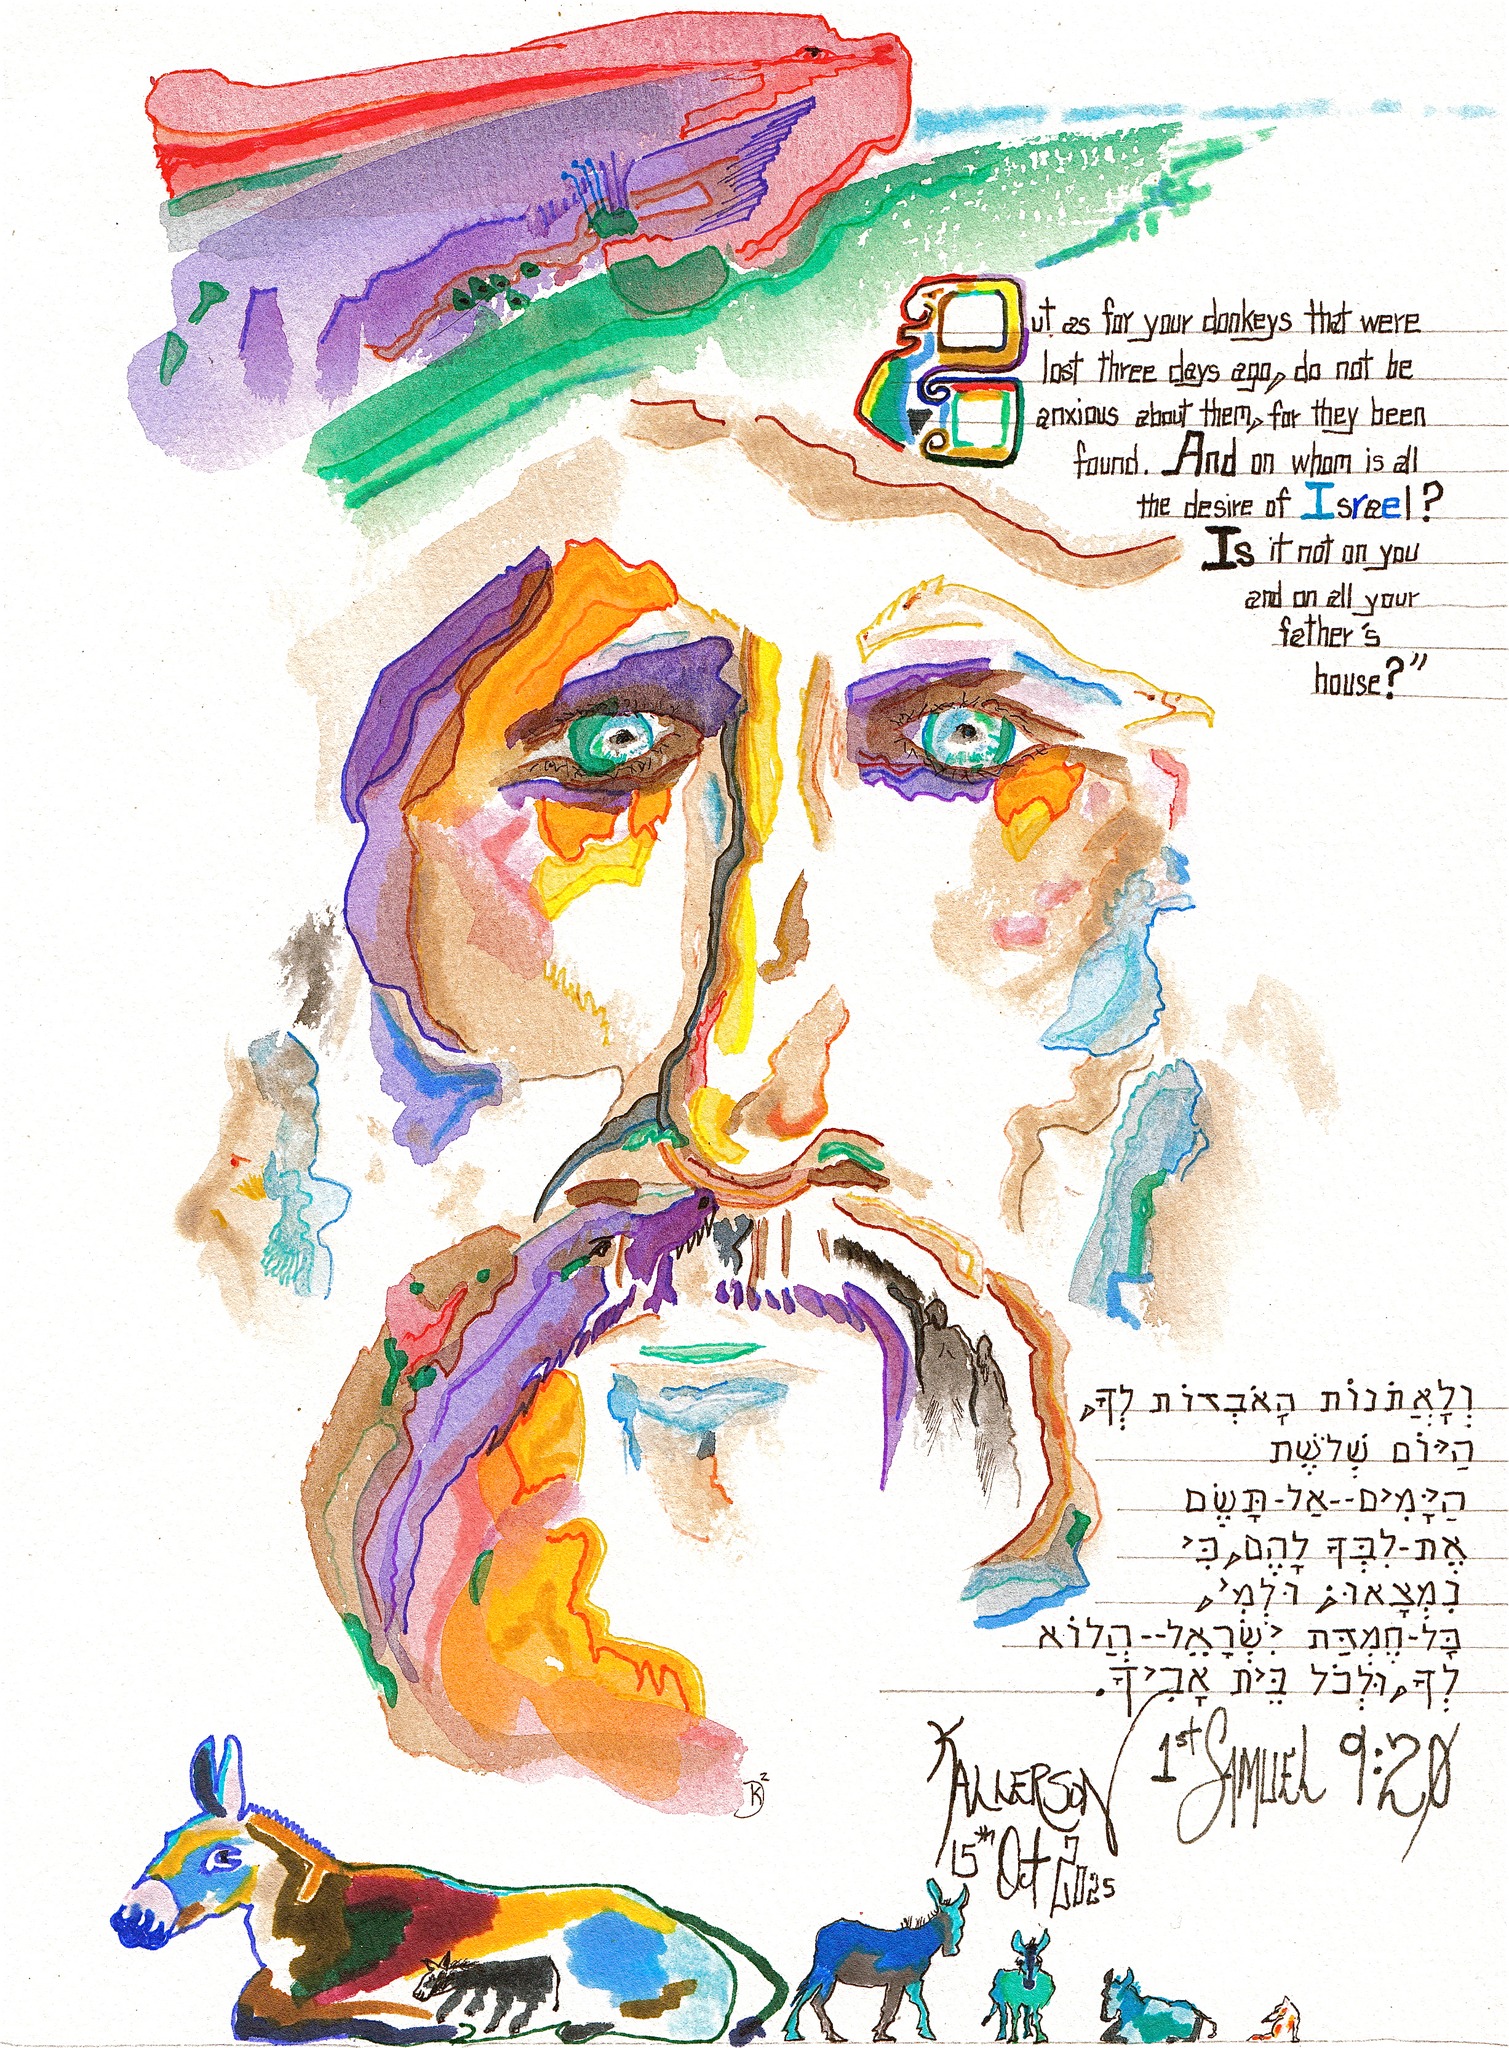 But as for your donkeys that were
lost three days ago, do not be
anxious about them, for they been
found. And on whom is all
the desire of Israel?
Is it not on you
and on all your
father's
house?"
וְלָאֲתֹנוֹת הָאֹבְדוֹת לְךָ,
הַיּוֹם שְׁלֹשֶׁת
הַיָּמִים--אַל-תָּשֶׂם
אֶת-לִבְּךָ לָהֶם, כִּי
נִמְצָאוּ; וּלְמִי,
כָּל-חֶמְדַּת יִשְׂרָאֵל--הֲלוֹא
לְךָ, וּלְכֹל בֵּית אָבִיךָ.
1st SAMUEL 9:20
KALLERSON
15th Oct 2025